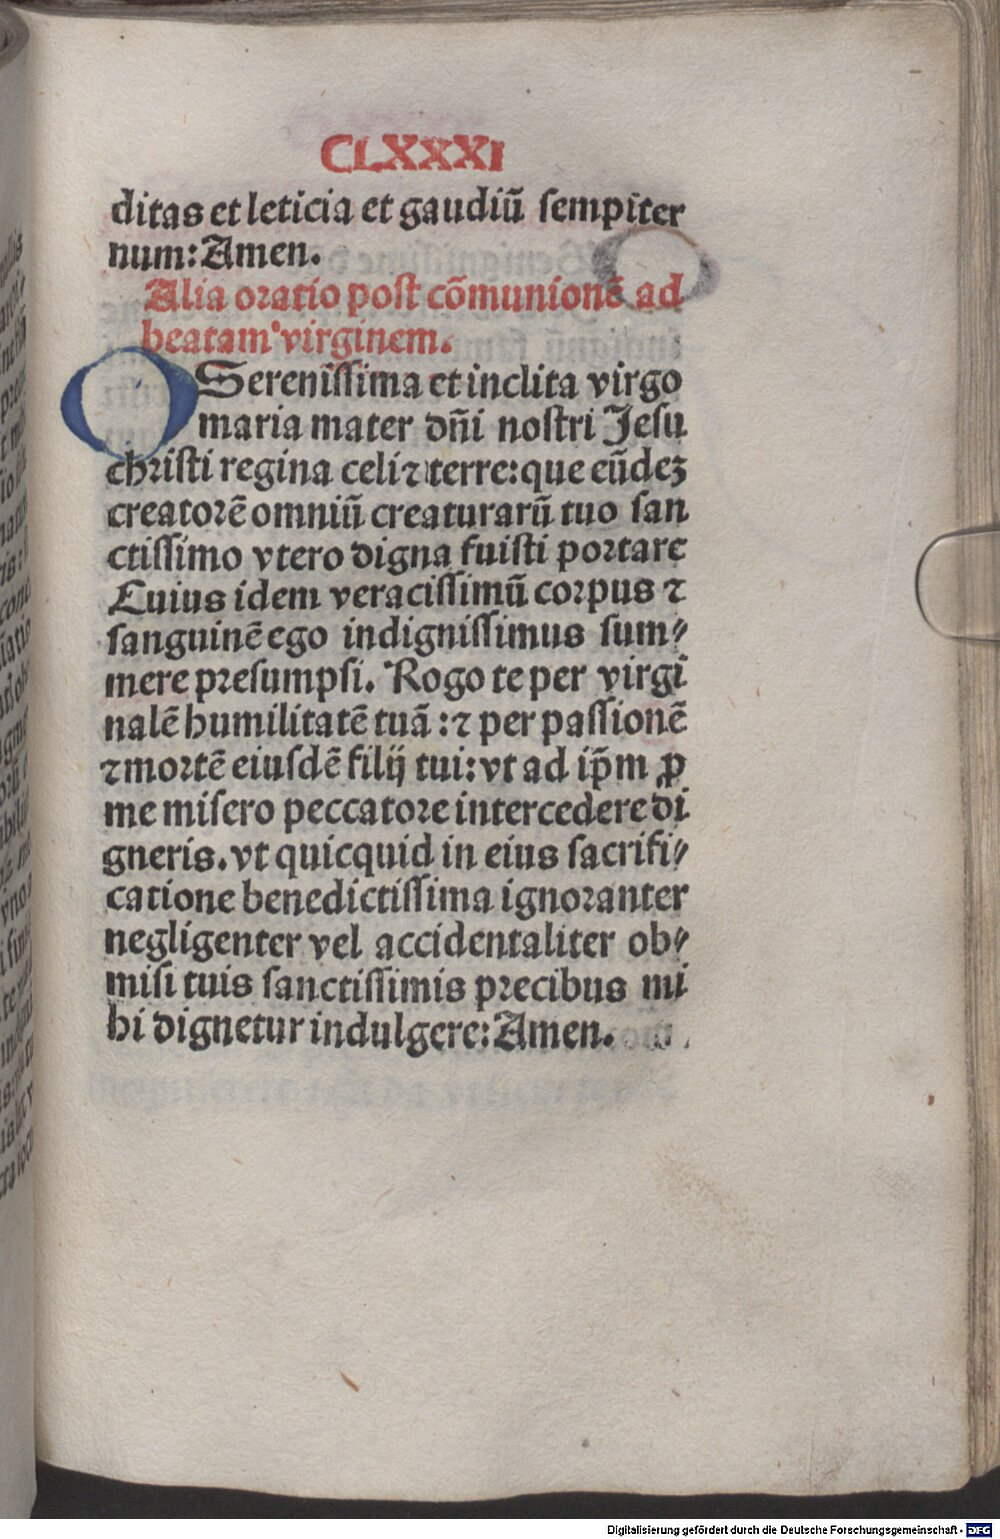 CLXXXI
ditas et leticia et gaudiũ ſempiter
num: Amen.
Alia oꝛatio poſt cõmunionẽ ad
beatam virginem.
O Sereniſſima et inclita virgo
maria mater dñi noſtri Jeſu
chꝛiſti regina celi ⁊ terre: que eũdeꝫ
creatoꝛẽ omniũ creaturarũ tuo ſan
ctiſſimo vtero digna fuiſti poꝛtare
Cuius idem veraciſſimũ coꝛpus ⁊
ſanguinẽ ego indigniſſimus ſum⸗
mere pꝛeſumpſi. Rogo te per virgi
nalẽ humilitatẽ tuã: ⁊ per paſſionẽ
⁊ moꝛtẽ eiuſdẽ filij tui: vt ad ip̃m ꝓ
me miſero peccatoꝛe intercedere di
gneris. vt quicquid in eius ſacrifi⸗
catione benedictiſſima ignoꝛanter
negligenter vel accidentaliter ob⸗
miſi tuis ſanctiſſimis pꝛecibus mi
hi dignetur indulgere: Amen.
Digitalisierung gefördert durch die Deutsche Forschungsgemeinschaft - DFG